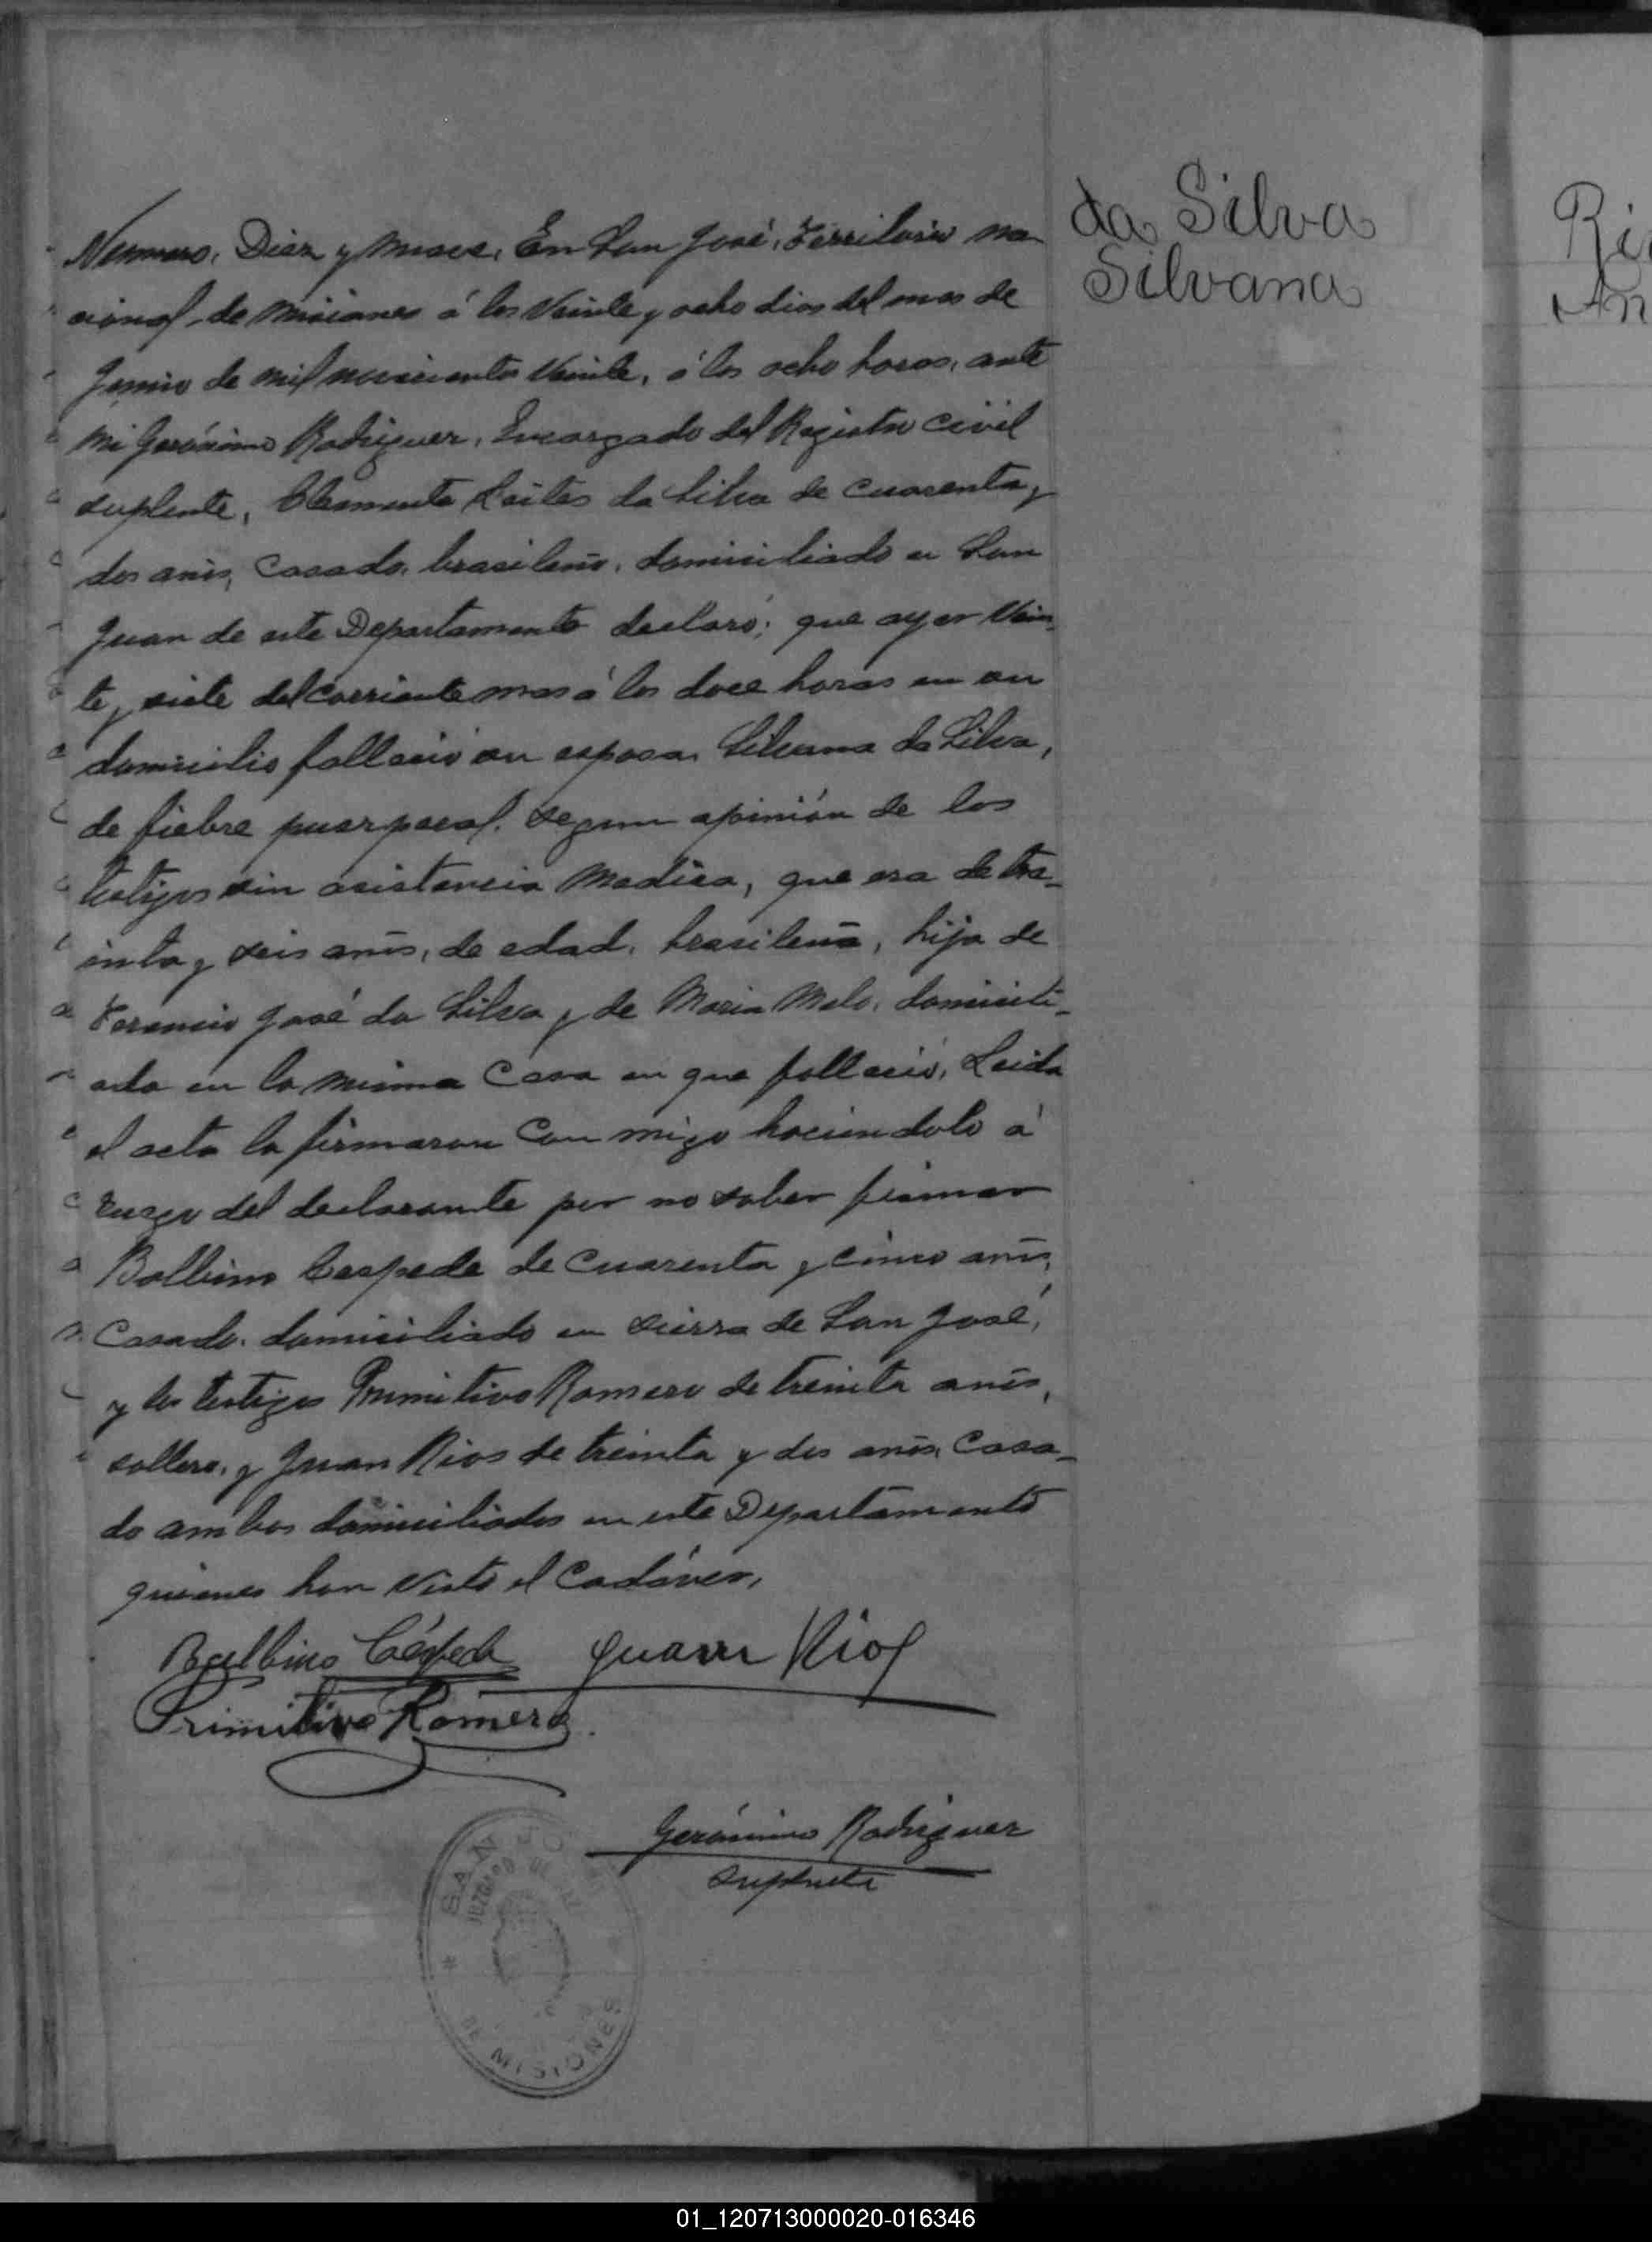 Numero. Diez y nueve. En San José, Territorio na-
cional de Misiones á los Veinte y ocho dias del mes de
Junio de mil novecientos Veinte, á las ocho horas, ante
mi Gerónimo Rodriguez, Encargado del Registro Civil
suplente, Clemente Leites da Silva de cuarenta y
dos años, casado, brasileño, domiciliado en San
Juan de este Departamento declaró; que ayer Vein-
te y siete del corriente mes á las doce horas en su
domicilio falleció su esposa Silvana da Silva,
de fiebre puerperal. segun opinión de los
testigos sin asistencia Medica, que era de tre-
inta y seis años, de edad, brasileña, hija de
José da Silva y de Maria Melo, domicili-
ada en la misma Casa en que falleció, Leida
el acta la firmaron Con migo haciendolo á
ruego del declarante por no saber firmar
Balbino Cespede de Cuarenta y cinco años,
Casado. domiciliado en sierra de San José,
y los testigos Primitivo Romero de treinta años,
soltero, y Juan Rios de treinta y dos años, Casa-
do ambos domiciliados en este Departamento
quienes han Visto el Cadáver,
Balbino Céspede Juan Rios
Primitivo Romero
Gerónimo Rodriguez
suplente
SAN JOSÉ
JUZGADO DE PAZ
DE MISIONES
da Silva
Silvana
01_120713000020-016346